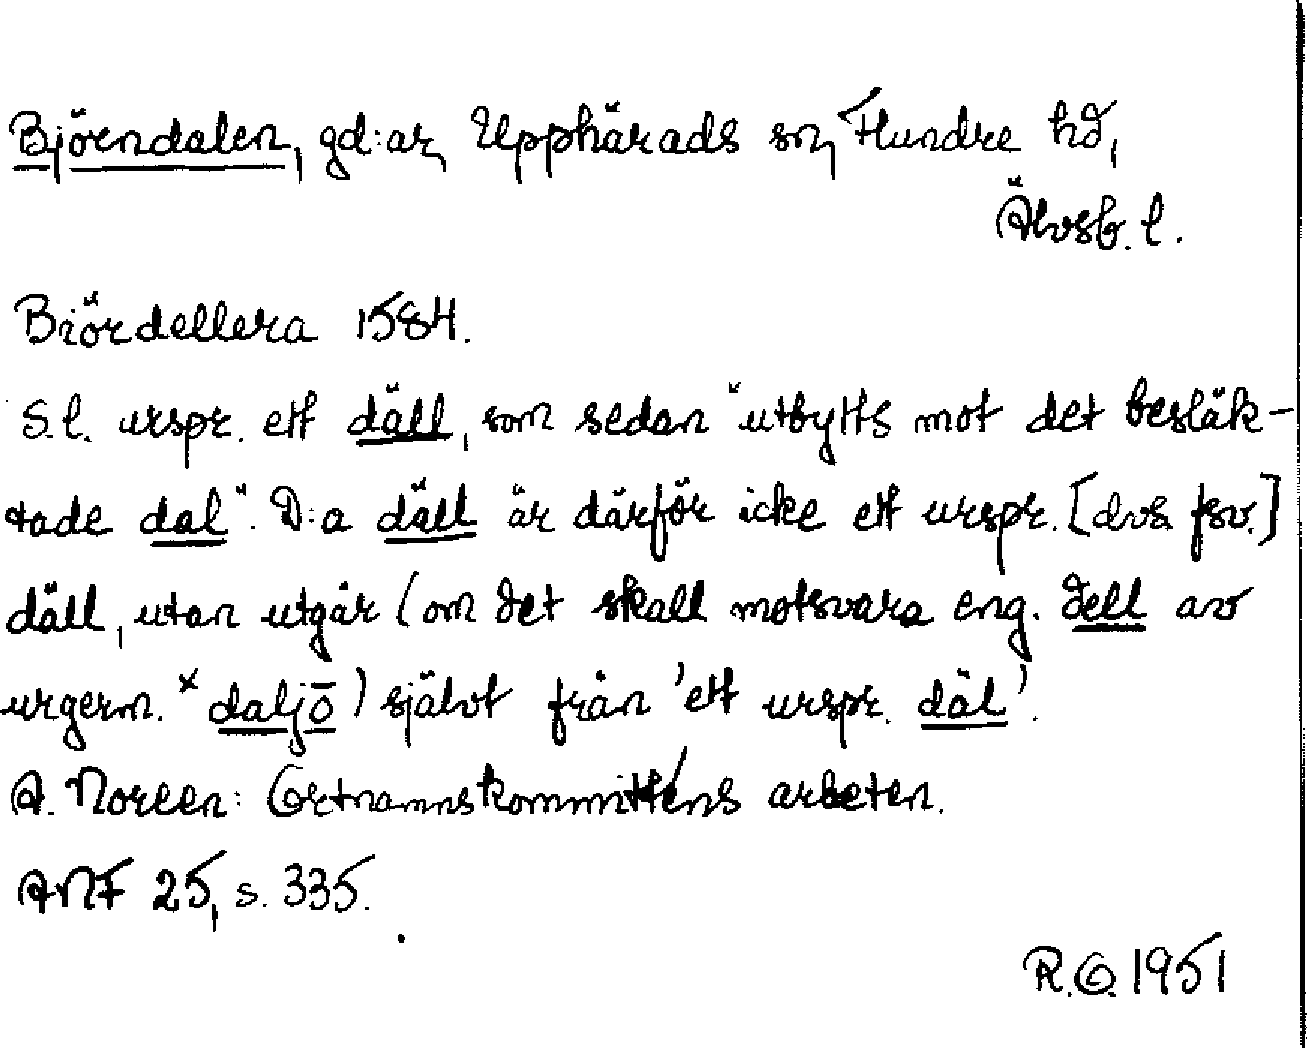 Björndalen, gd:ar, Upphärads sn, Flundre hd,
Älvsb. l.
Biördellera 1584.
S.l. urspr. ett däll, som sedan "utbytts mot det besläk-
tade dal". D:a däll är därför icke ett urspr. [dvs. fsv.]
däll, utan utgår (om det skall motsvara eng. dell av
urgerm. *daljō) självt från 'ett urspr. däl'.
A. Noreen: Ortnamnskommitténs arbeten.
ANF 25, s. 335.
R.O. 1951